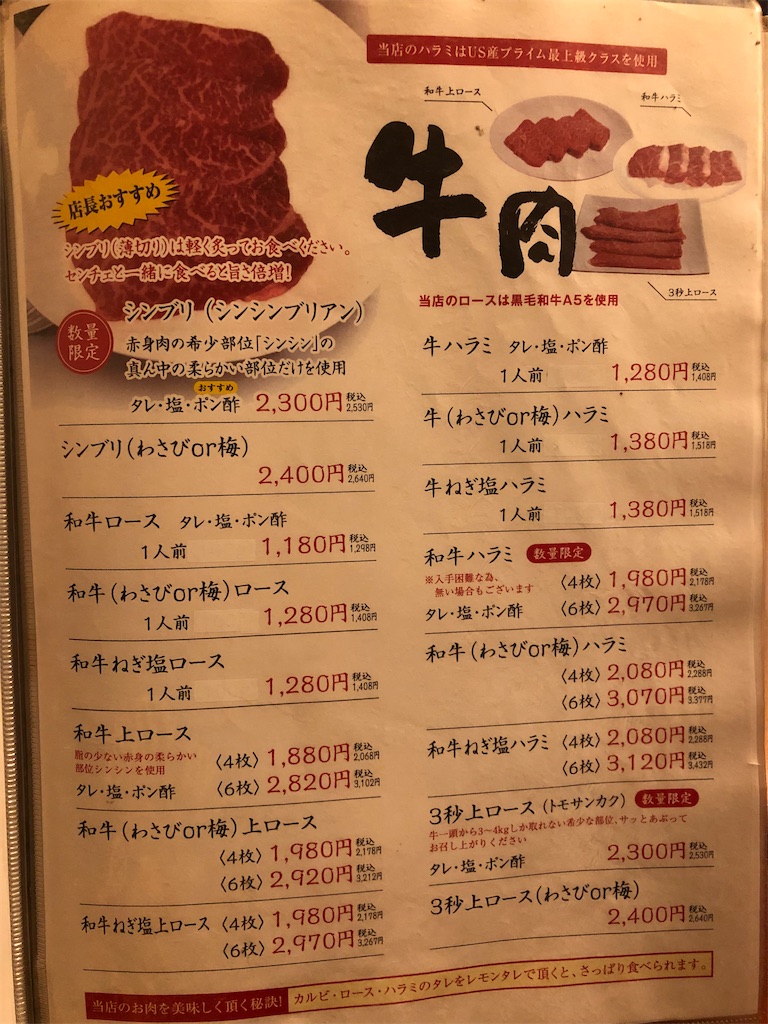 当店のハラミはUS産プライム最上級クラスを使用
和牛上ロース
和牛ハラミ
牛肉
3秒上ロース
当店のロースは黒毛和牛A5を使用
店長おすすめ
シンブリ(薄切り)は軽く炙ってお食べください。
センチェと一緒に食べると旨さ倍増!
数量
限定
シンブリ(シンシンブリアン)
赤身肉の希少部位「シンシン」の
真ん中の柔らかい部位だけを使用
おすすめ
タレ・塩・ポン酢 2,300円 税込 2,530円
シンブリ(わさびor梅)
2,400円 税込 2,640円
和牛ロース タレ・塩・ポン酢
1人前 1,180円 税込 1,298円
和牛(わさびor梅)ロース
1人前 1,280円 税込 1,408円
和牛ねぎ塩ロース
1人前 1,280円 税込 1,408円
和牛上ロース
脂の少ない赤身の柔らかい
部位シンシンを使用
〈4枚〉 1,880円 税込 2,068円
タレ・塩・ポン酢 〈6枚〉 2,820円 税込 3,102円
和牛(わさびor梅)上ロース
〈4枚〉 1,980円 税込 2,178円
〈6枚〉 2,920円 税込 3,212円
和牛ねぎ塩上ロース 〈4枚〉 1,980円 税込 2,178円
〈6枚〉 2,970円 税込 3,267円
牛ハラミ タレ・塩・ポン酢
1人前 1,280円 税込 1,408円
牛(わさびor梅)ハラミ
1人前 1,380円 税込 1,518円
牛ねぎ塩ハラミ
1人前 1,380円 税込 1,518円
和牛ハラミ 数量限定
※入手困難な為、
無い場合もございます
〈4枚〉 1,980円 税込 2,178円
タレ・塩・ポン酢 〈6枚〉 2,970円 税込 3,267円
和牛(わさびor梅)ハラミ
〈4枚〉 2,080円 税込 2,288円
〈6枚〉 3,070円 税込 3,377円
和牛ねぎ塩ハラミ 〈4枚〉 2,080円 税込 2,288円
〈6枚〉 3,120円 税込 3,432円
3秒上ロース(トモサンカク) 数量限定
牛一頭から3〜4kgしか取れない希少な部位、サッとあぶって
お召し上がりください
タレ・塩・ポン酢 2,300円 税込 2,530円
3秒上ロース(わさびor梅)
2,400円 税込 2,640円
当店のお肉を美味しく頂く秘訣! カルビ・ロース・ハラミのタレをレモンタレで頂くと、さっぱり食べられます。